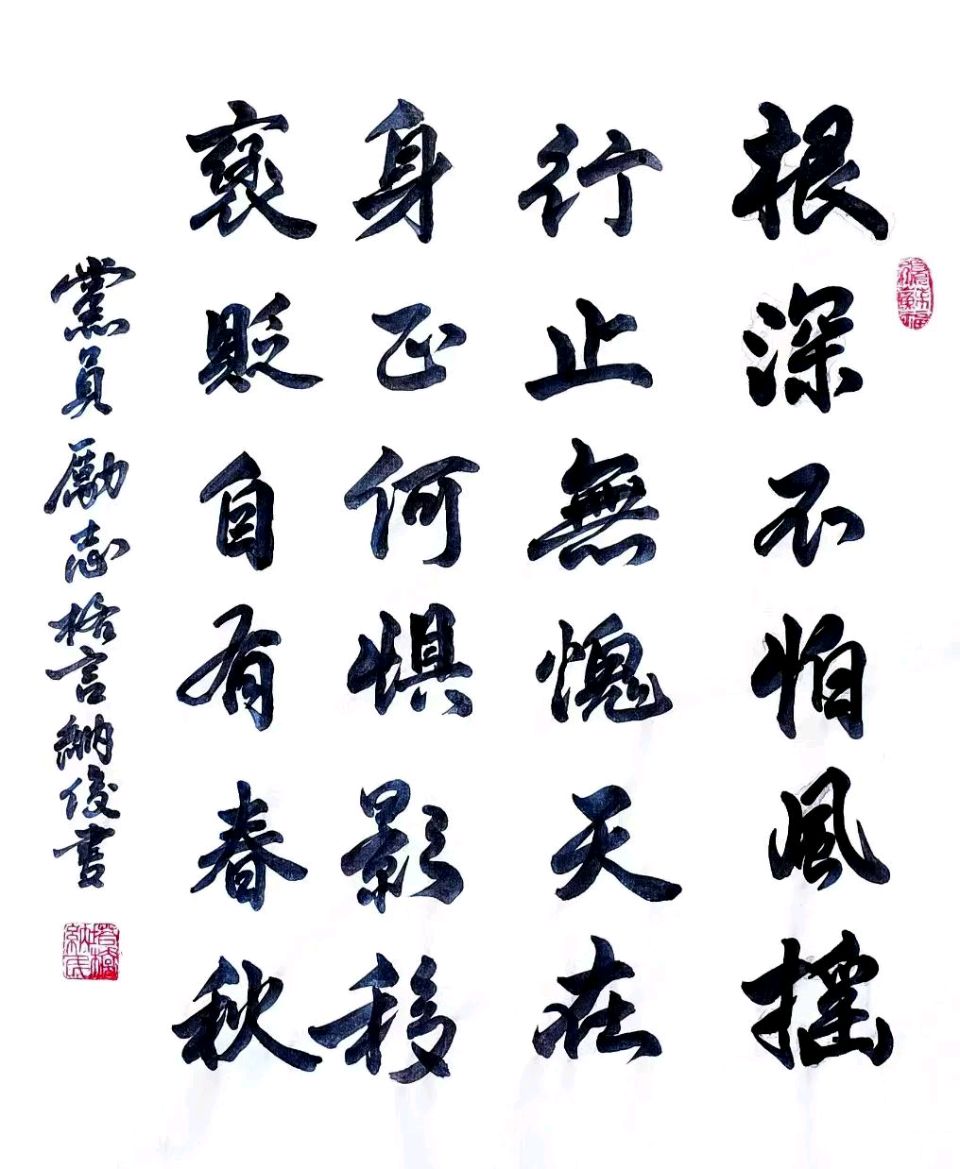 根深不怕風摇
行止無愧天在
身正何懼影移
褒貶自有春秋
黨員勵志格言納俊書